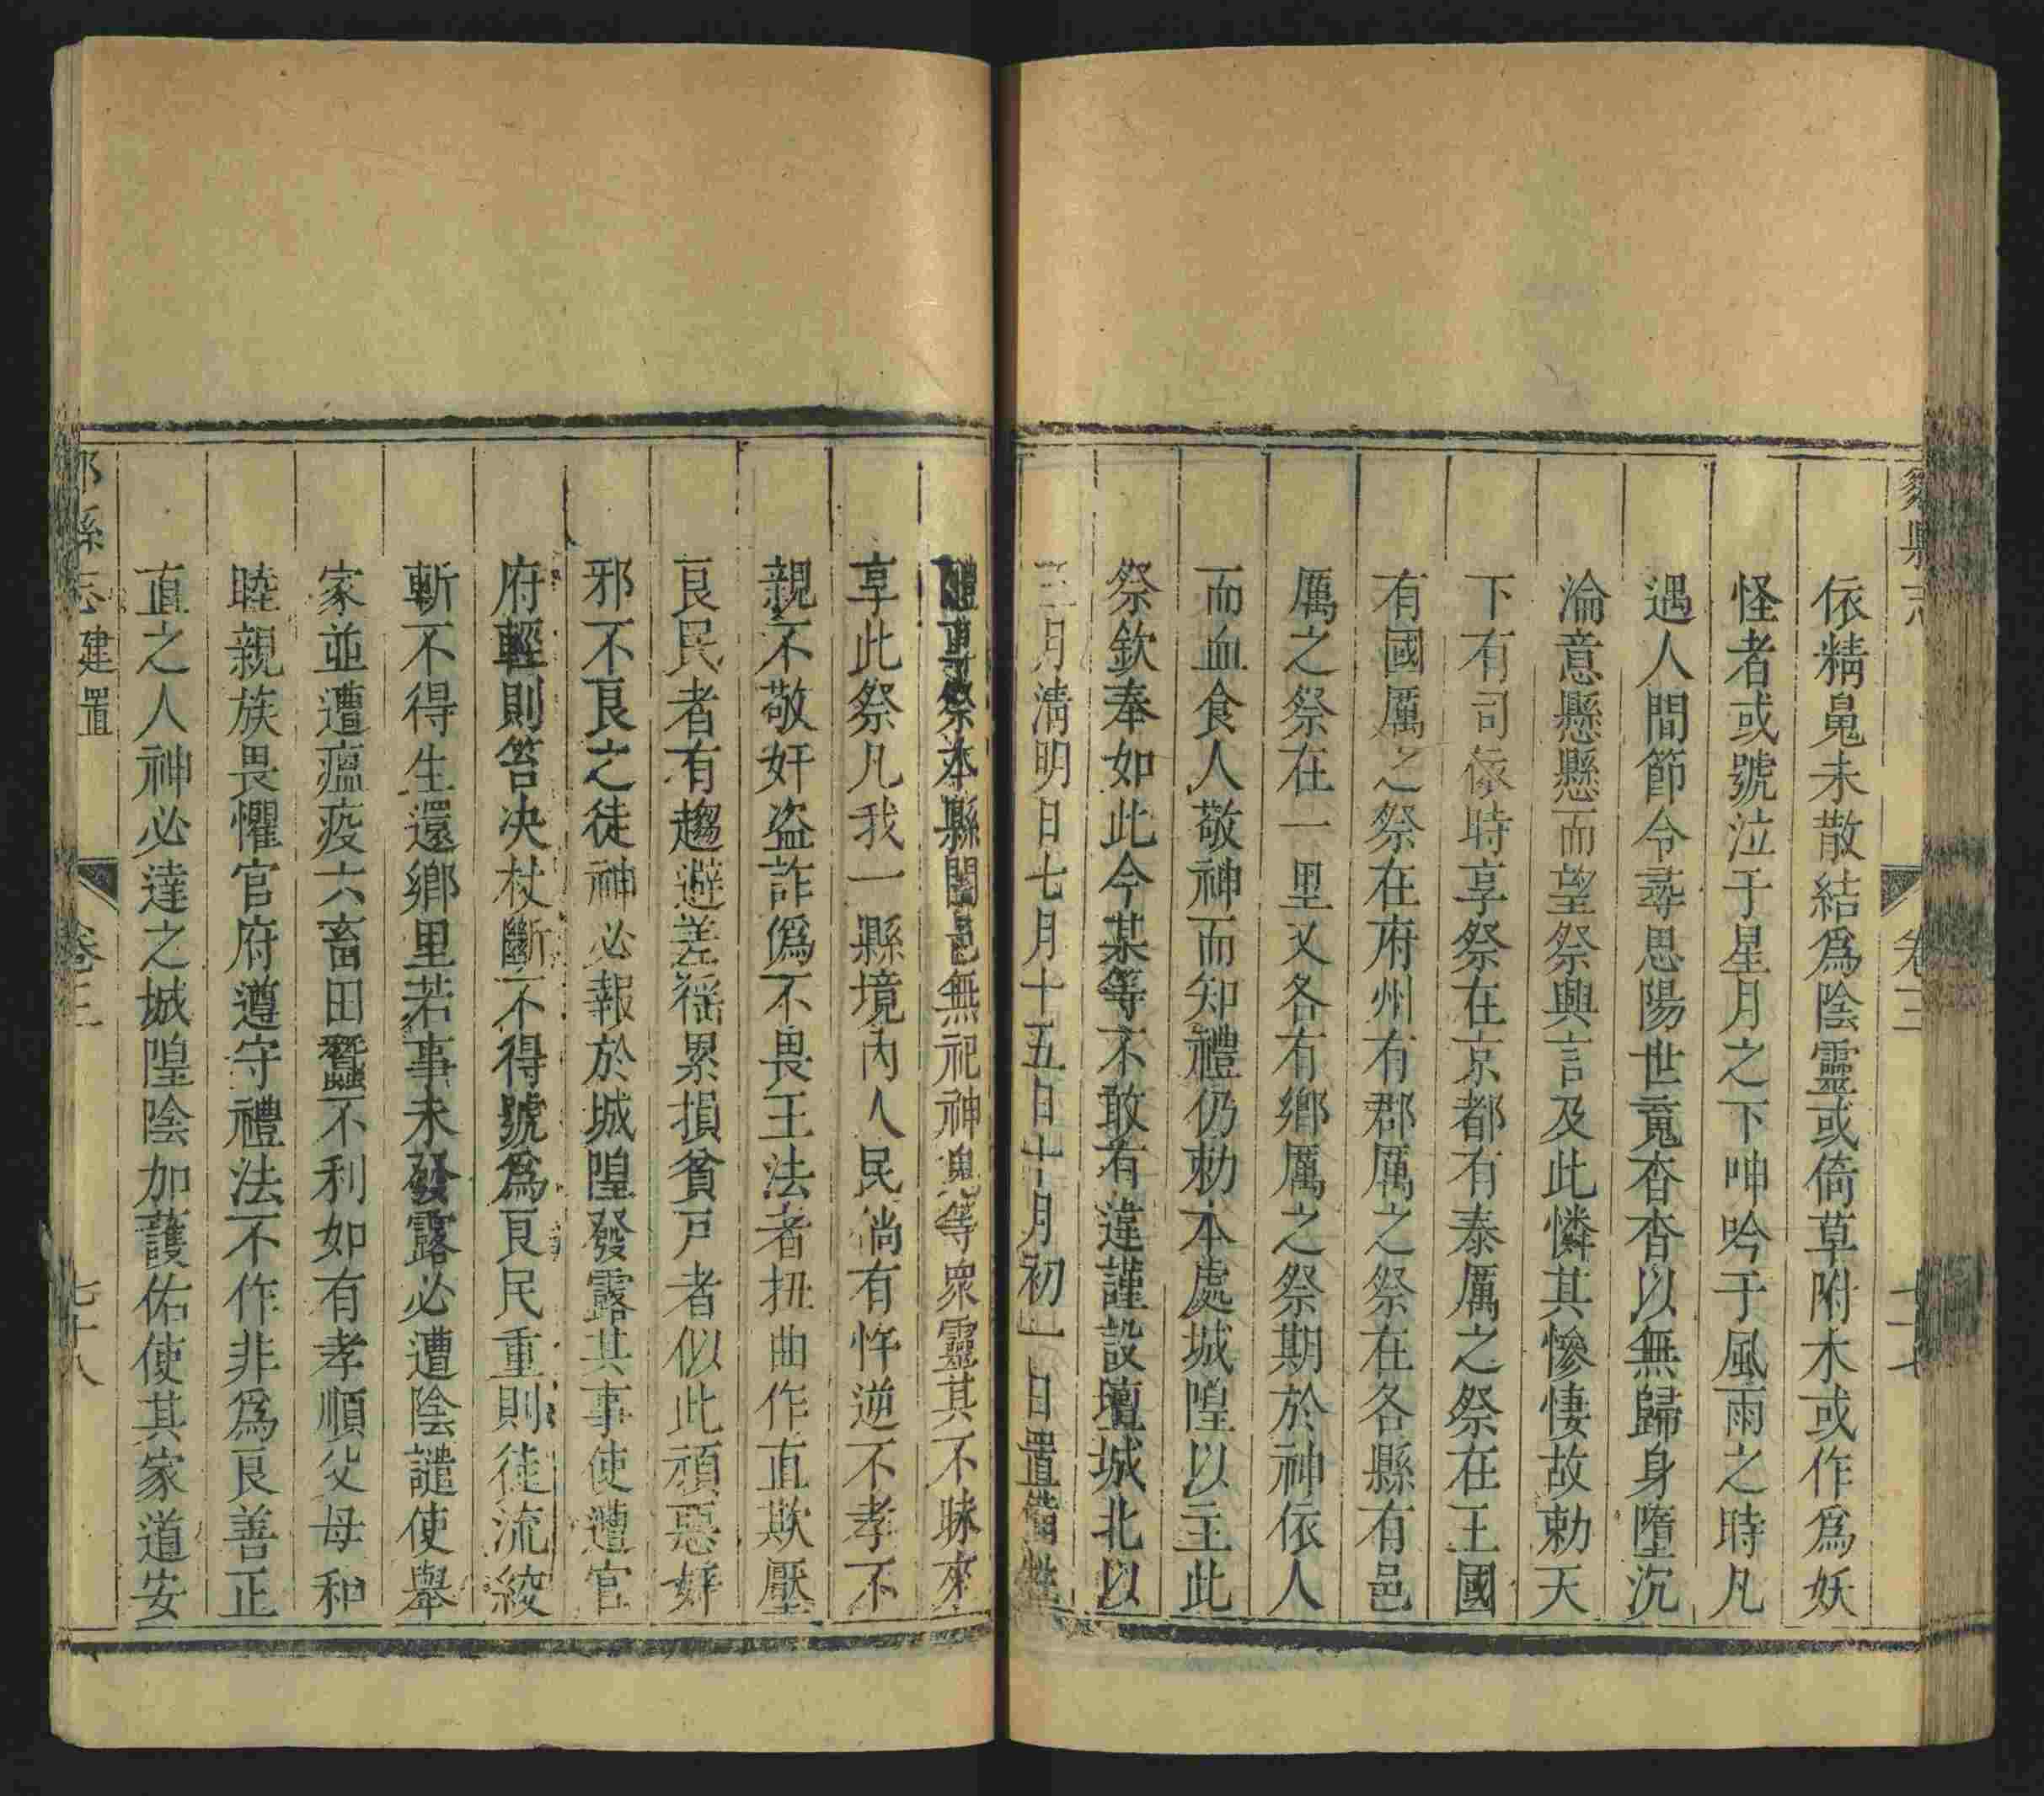 縣志
卷三
依精鬼未散結爲陰靈或倚草附木或作爲妖
怪者或號泣于星月之下呻吟于風雨之時凡
遇人間節令尋思陽世䰟杳杳以無歸身墮沉
淪意懸懸而望祭興言及此憐其慘悽故勅天
下有司依時享祭在京都有泰厲之祭在王國
有國厲之祭在府州有郡厲之祭在各縣有邑
厲之祭在一里又各有鄉厲之祭期於神依人
而血食人敬神而知禮仍勅本處城隍以主此
祭欽奉如此今某等不敢有違謹設壇城北以
三月淸明日七月十五日十月初一日置備牲
醴專祭本縣闔邑無祀神鬼等衆靈其不昧來
享此祭凡我一縣境內人民倘有忤逆不孝不
親不敬奸盗詐僞不畏王法者扭曲作直欺壓
良民者有趨避差徭累損貧戸者似此頑惡奸
邪不良之徒神必報於城隍發露其事使遭官
府輕則笞决杖斷不得號爲良民重則徒流絞
斬不得生還鄉里若事未發露必遭陰譴使舉
家並遭瘟疫六畜田蠶不利如有孝順父母和
睦親族畏懼官府遵守禮法不作非爲良善正
直之人神必達之城隍陰加護佑使其家道安
縣志建置
卷三
七十八